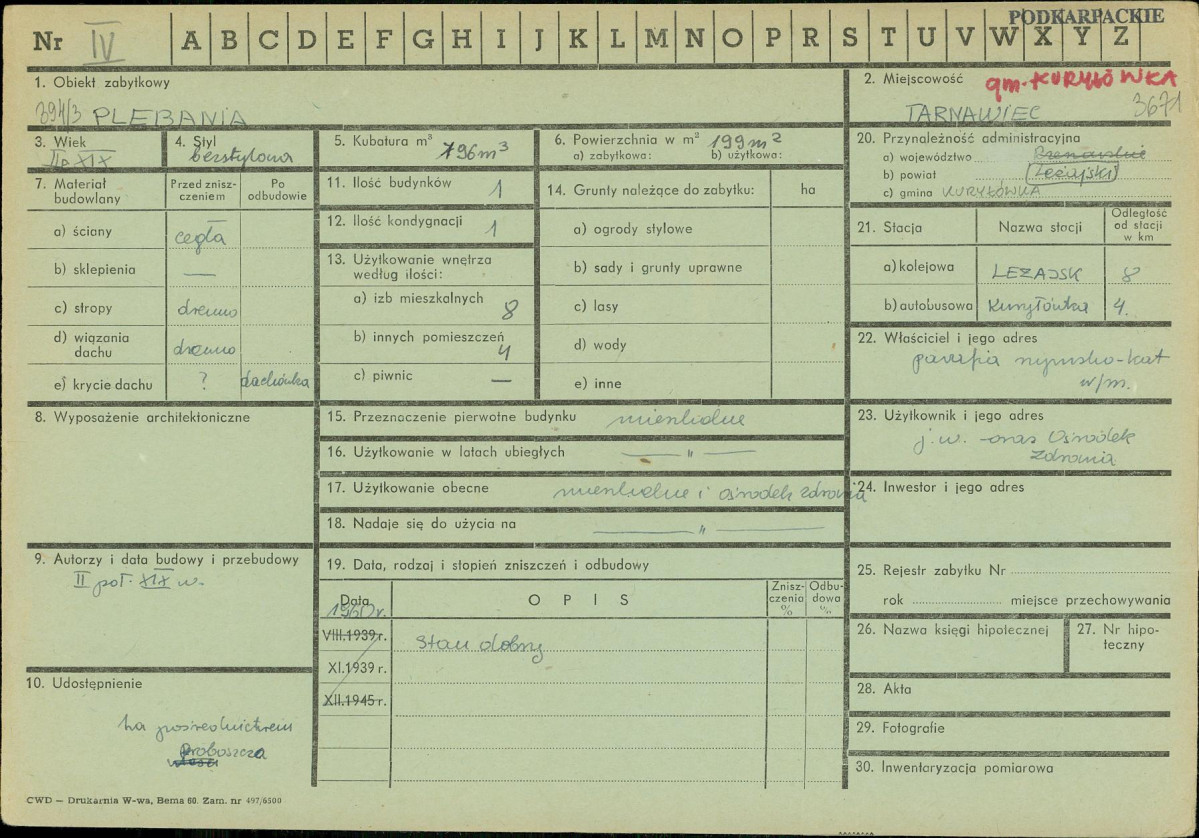 PODKARPACKIE
Nr IV A B C D E F G H I J K L M N O P R S T U V W X Y Z
1. Obiekt zabytkowy
394/3 PLEBANIA
2. Miejscowość gm. KURYŁÓWKA
TARNAWIEC 3671
3. Wiek
II p XIX
4. Styl
bezstylowa
5. Kubatura m³ 796 m³
6. Powierzchnia w m² 199 m²
a) zabytkowa: b) użytkowa:
20. Przynależność administracyjna
a) województwo Rzeszowskie
b) powiat Leżajski
c) gmina KURYŁÓWKA
7. Materiał budowlany
Przed zniszczeniem
Po odbudowie
a) ściany cegła
b) sklepienia —
c) stropy drewno
d) wiązania dachu drewno
e) krycie dachu ? dachówka
11. Ilość budynków 1
12. Ilość kondygnacji 1
13. Użytkowanie wnętrza według ilości:
a) izb mieszkalnych 8
b) innych pomieszczeń 4
c) piwnic —
14. Grunty należące do zabytku: ha
a) ogrody stylowe
b) sady i grunty uprawne
c) lasy
d) wody
e) inne
21. Stacja Nazwa stacji Odległość od stacji w km
a) kolejowa LEŻAJSK 8
b) autobusowa Kuryłówka 4.
22. Właściciel i jego adres
parafia rzymsko-kat
w/m.
8. Wyposażenie architektoniczne
15. Przeznaczenie pierwotne budynku mieszkalne
16. Użytkowanie w latach ubiegłych — " —
17. Użytkowanie obecne mieszkalne i ośrodek zdrowia
18. Nadaje się do użycia na — " —
23. Użytkownik i jego adres
j.w. - oraz Ośrodek
Zdrowia
24. Inwestor i jego adres
9. Autorzy i data budowy i przebudowy
II poł. XIX w.
19. Data, rodzaj i stopień zniszczeń i odbudowy
Data O P I S Zniszczenia % Odbudowa %
1960 r.
VIII.1939 r. Stan dobry
XI.1939 r.
XII.1945 r.
25. Rejestr zabytku Nr
rok miejsce przechowywania
26. Nazwa księgi hipotecznej
27. Nr hipoteczny
10. Udostępnienie
za pośrednictwem
proboszcza
28. Akta
29. Fotografie
30. Inwentaryzacja pomiarowa
CWD — Drukarnia W-wa, Bema 60. Zam. nr 497/6500